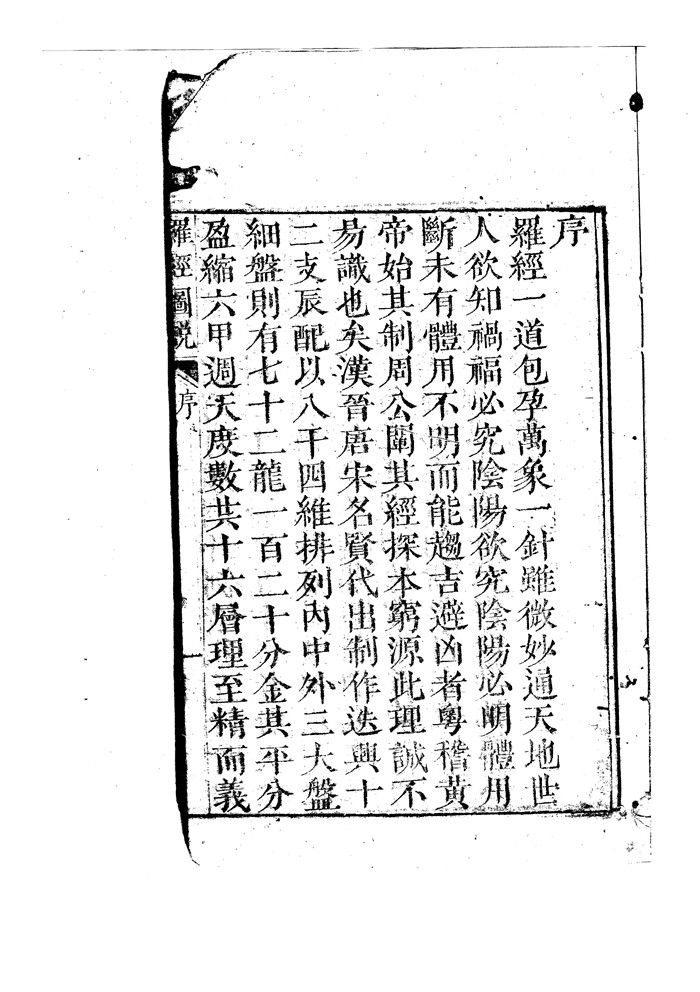 序
羅經一道包孕萬象一針雖微妙通天地世
人欲知禍福必究陰陽欲究陰陽必明體用
斷未有體用不明而能趨吉避凶者粵稽黃
帝始其制周公闡其經探本窮源此理誠不
易識也矣漢晉唐宋名賢代出制作迭興十
二支辰配以八干四維排列內中外三大盤
細盤則有七十二龍一百二十分金其平分
盈縮六甲週天度數共十六層理至精而義
羅經圖說 序 一